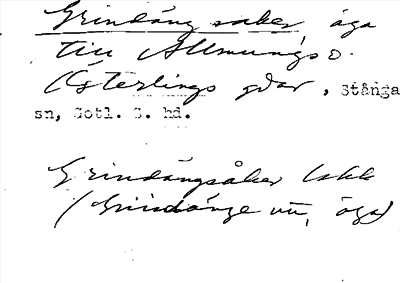 Grindäng saker, äga
till Allmungs o.
(Österlings gdar, Stånga
sn, Gotl. S. hd.
Grindängsåker Lskk
(Grindänge